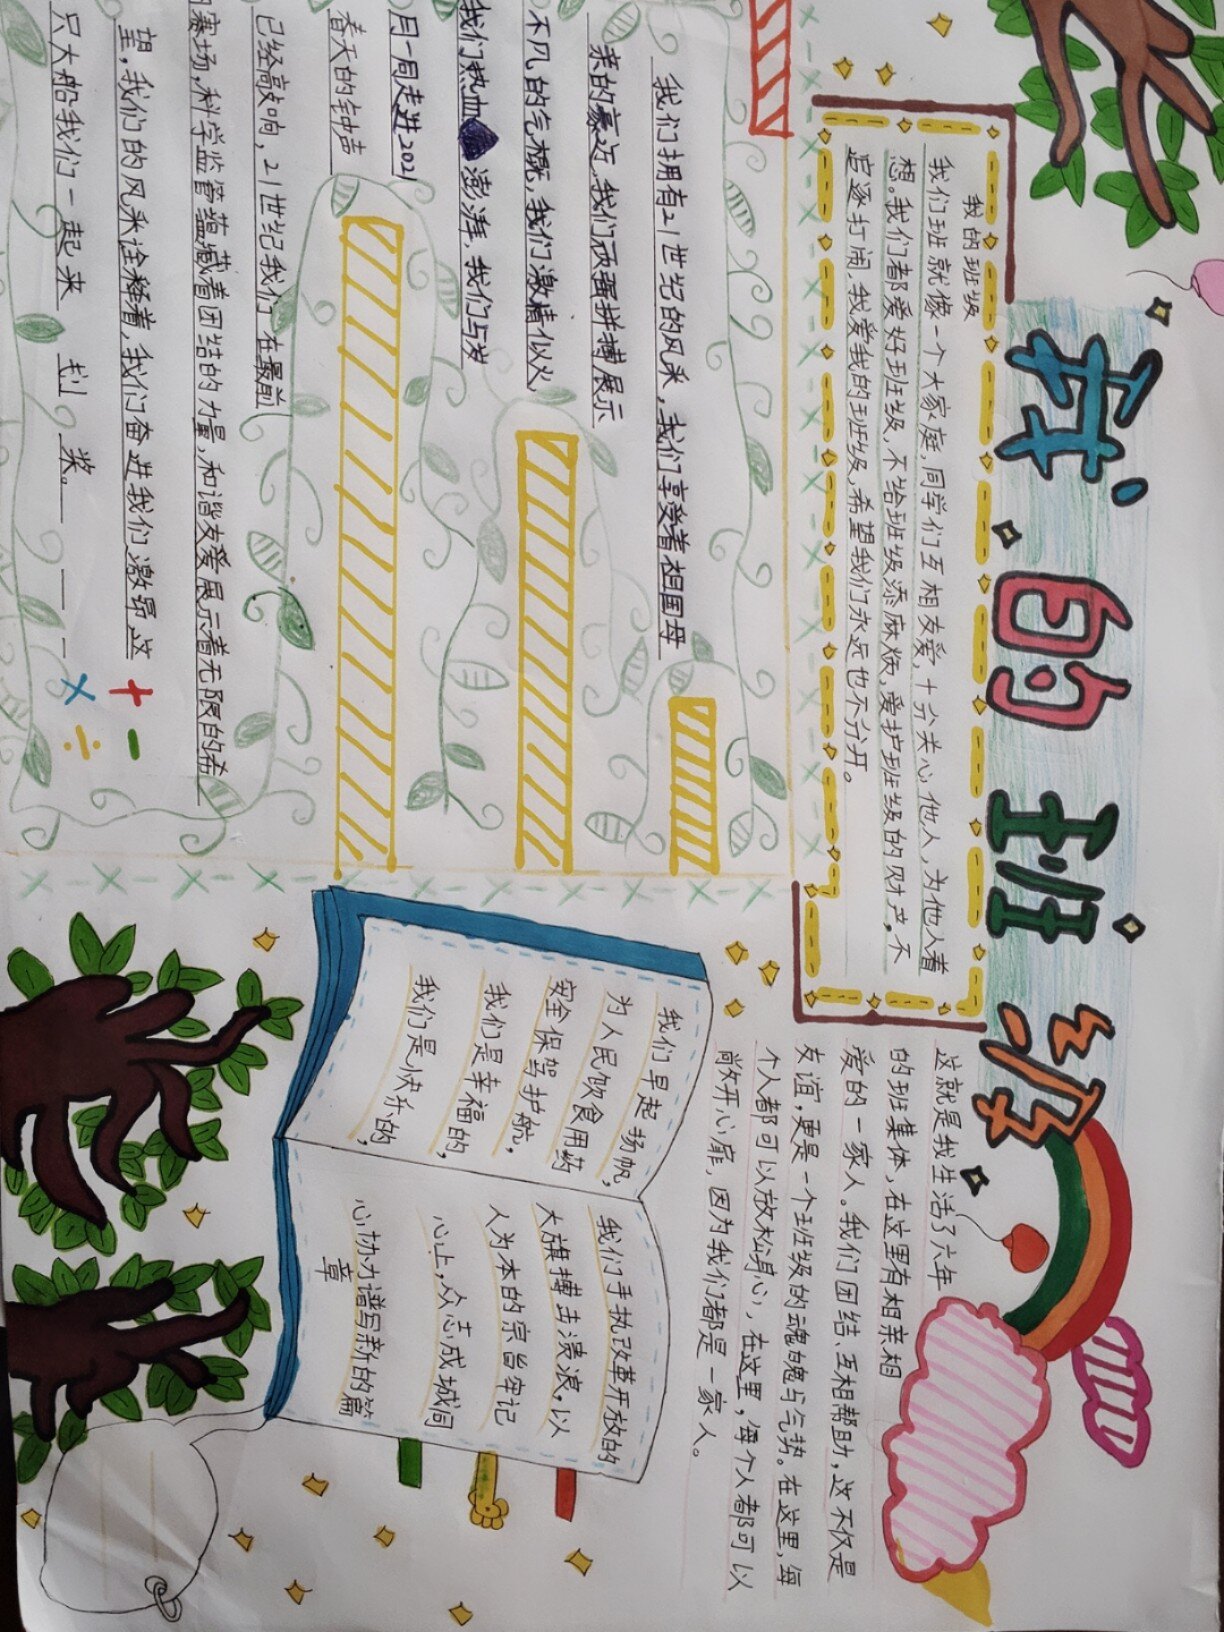 我的班级
我的班级
我们班就像一个大家庭,同学们互相友爱,十分关心他人,为他人着
想。我们都爱好班级,不给班级添麻烦,爱护班级的财产,不
追逐打闹.我爱我的班级,希望我们永远也不分开。
这就是我生活了六年
的班集体,在这里有相亲相
爱的一家人。我们团结、互相帮助,这不仅是
友谊,更是一个班级的魂魄与气势。在这里,每
个人都可以放松身心,在这里,每个人都可以
敞开心扉,因为我们都是一家人。
我们拥有21世纪的风采,我们享受着祖国母
亲的豪迈,我们顽强拼搏展示
不凡的气概,我们激情似火,
我们热血澎湃,我们与岁
月一同走进2021
春天的钟声
已经敲响,21世纪我们在最前
赛场,科学监管蕴藏着团结的力量,和谐友爱展示着无限的希
望,我们的风采诠释着,我们奋进我们激昂这
只大船我们一起来 划 桨。
+ -
× ÷
我们早起扬帆,
为人民饮食用药
安全保驾护航,
我们是幸福的,
我们是快乐的,
我们手执改革开放的
大旗搏击浪,以
人为本的宗旨牢记
心上,众志成城同
心协力谱写新的篇
章